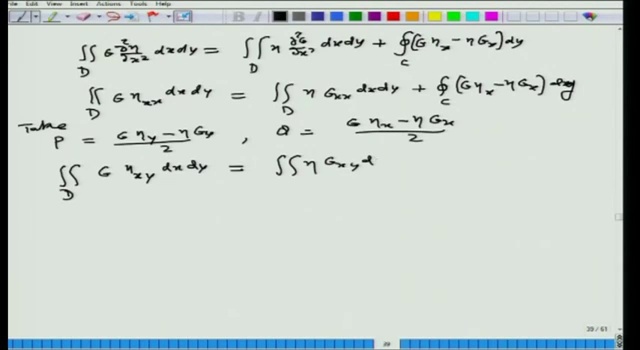 File Edit View Insert Actions Tools Help
∬_D G ∂²η/∂x² dxdy = ∬_D η ∂²G/∂x² dxdy + ∮_C (Gη_x − ηG_x) dy
∬_D G η_xx dxdy = ∬_D η G_xx dxdy + ∮_C (Gη_x − ηG_x) dy
Take P = (G η_y − η G_y)/2 , Q = (G η_x − η G_x)/2
∬_D G η_xy dxdy = ∬ η G_xy d
29 / 61
29